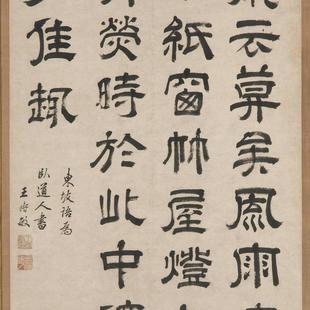 云莫矣風雨
紙窗竹屋燈
熒時於此中
佳趣
東坡語為
臥道人書
王時敏